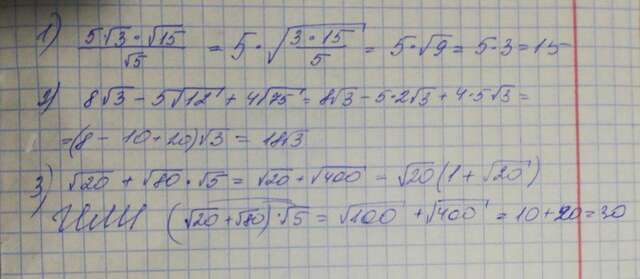 1) 5√3 * √15 / √5 = 5 * √(3 * 15 / 5) = 5 * √9 = 5 * 3 = 15
2) 8√3 - 5√12 + 4√75 = 8√3 - 5 * 2√3 + 4 * 5√3 =
= (8 - 10 + 20)√3 = 18√3
3) √20 + √80 * √5 = √20 + √400 = √20(1 + √20)
ИЛИ (√20 + √80) * √5 = √100 + √400 = 10 + 20 = 30